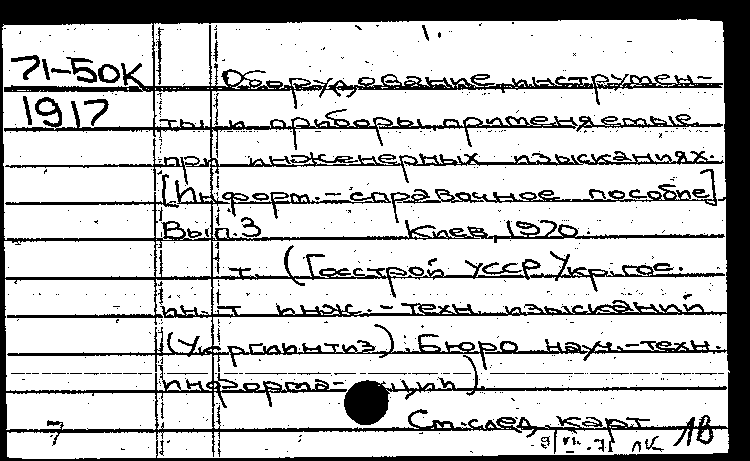 1.
71-50К Оборудование, инструмен-
1917 ты и приборы, применяемые
при инженерных изысканиях.
[Информ.-справочное пособие]
Вып.3 Киев, 1970.
т. (Госстрой УССР. Укр. гос.
ин-т инж.-техн. изысканий
(Укргиинтиз). Бюро науч.-техн.
информа-ции)
См. след. карт
7 71 ЛК 1В